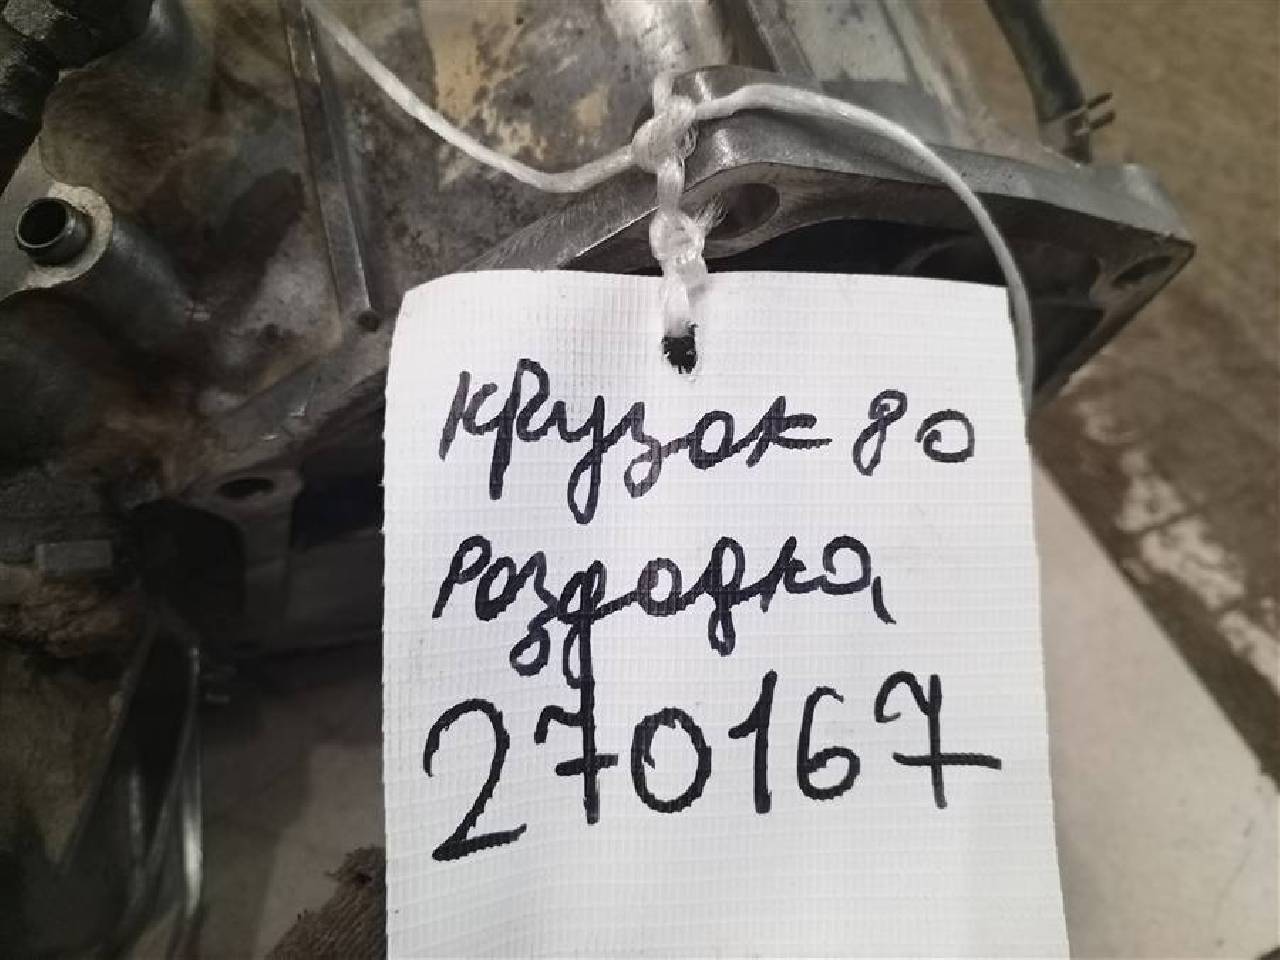 крузак 80
роздодка
270167